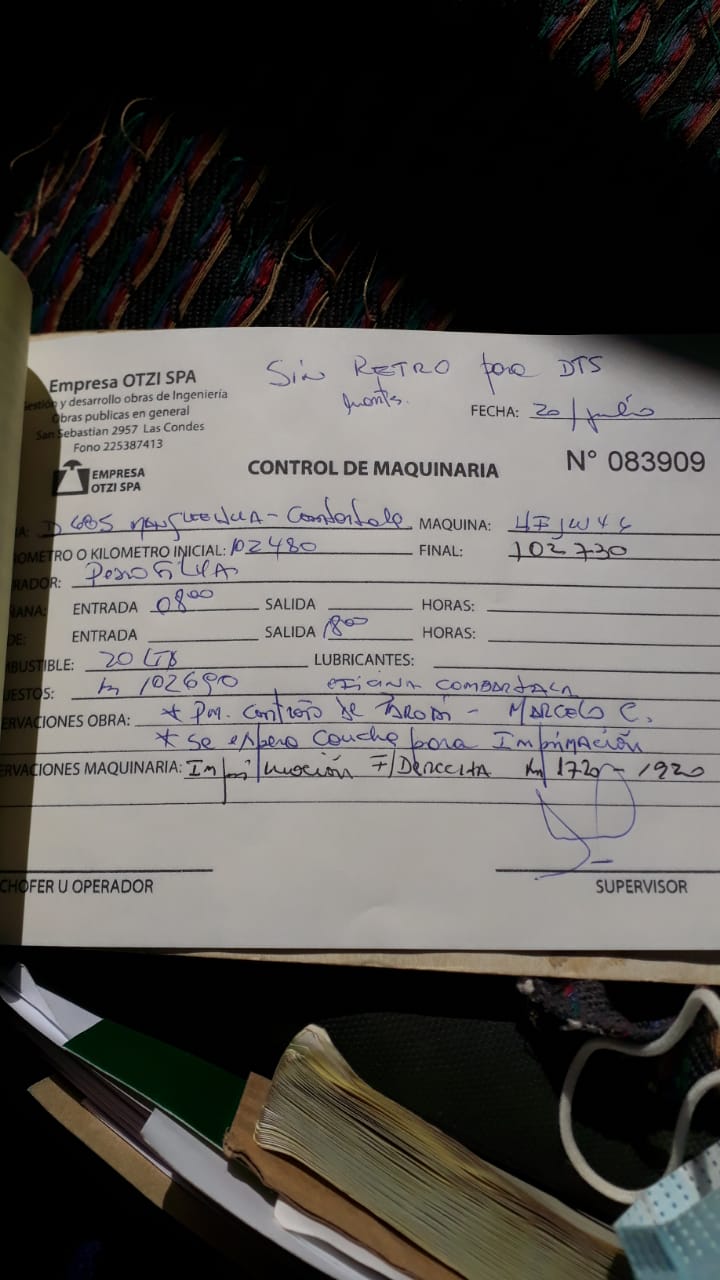 Sin RETRO para DTS
Empresa OTZI SPA
Gestión y desarrollo obras de Ingeniería
Obras publicas en general
FECHA: 20/julio
San Sebastian 2957 Las Condes
Fono 225387413
EMPRESA
OTZI SPA
CONTROL DE MAQUINARIA
N° 083909
A: D485 - Combarbala MAQUINA: HFJW46
OMETRO O KILOMETRO INICIAL: 102480 FINAL: 102730
RADOR:
ÑANA: ENTRADA 0800 SALIDA HORAS:
DE: ENTRADA SALIDA 1800 HORAS:
BUSTIBLE: 20 LTS LUBRICANTES:
UESTOS: km 102690 OFICINA COMBARBALA
ERVACIONES OBRA: * Pm. Control de - MARCELO C.
* Se espero cancha para Imprimación
ERVACIONES MAQUINARIA: Imprimación F/DERECHA km 1720 - 1920
CHOFER U OPERADOR
SUPERVISOR